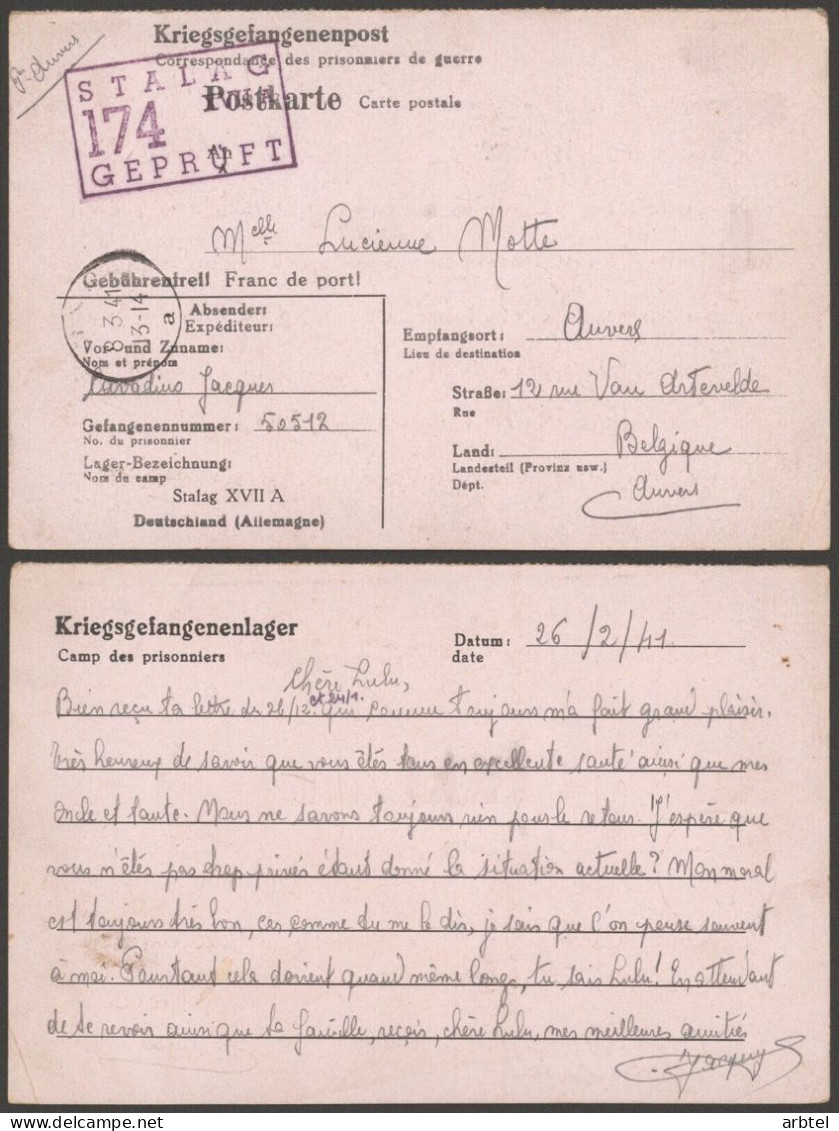 Pr Anvers
Kriegsgefangenenpost
Correspondance des prisonniers de guerre
STALAG
XVII A
174
GEPRÜFT
Postkarte Carte postale
An
Melle Lucienne Motte
Gebührenfrei! Franc de port!
8.3.41
13-14
a
Absender:
Expéditeur:
Vor- und Zuname:
Nom et prénom
Jacques
Gefangenennummer: 50512
No. du prisonnier
Lager-Bezeichnung:
Nom du camp
Stalag XVII A
Deutschland (Allemagne)
Empfangsort: Anvers
Lieu de destination
Straße: 12 rue Van Artevelde
Rue
Land: Belgique
Landesteil (Provinz usw.)
Dépt. Anvers
Kriegsgefangenenlager
Camp des prisonniers
Datum: 26/2/41
date
Chère Lulu,
et 24/1.
Bien reçu ta lettre du 26/12. qui comme toujours m'a fait grand plaisir.
très heureux de savoir que vous êtes tous en excellente santé ainsi que mes
oncle et tante. Nous ne savons toujours rien pour le retour. J'espère que
vous n'êtes pas trop privés étant donné la situation actuelle? Mon moral
est toujours très bon, car comme tu me le dis, je sais que l'on pense souvent
à moi. Pourtant cela devient quand même long, tu sais Lulu! En attendant
de te revoir ainsi que ta famille, reçois, chère Lulu, mes meilleures amitiés
Jacques
arbtel